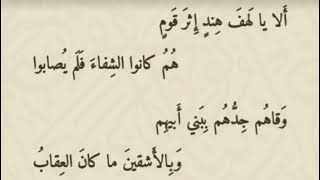 أَلا يا لَهفَ هِندٍ إِثرَ قَومٍ
هُمُ كانوا الشِفاءَ فَلَم يُصابوا
وَقاهُم جِدُّهُم بِبَني أَبيهِم
وَبِالأَشقينَ ما كانَ العِقابُ